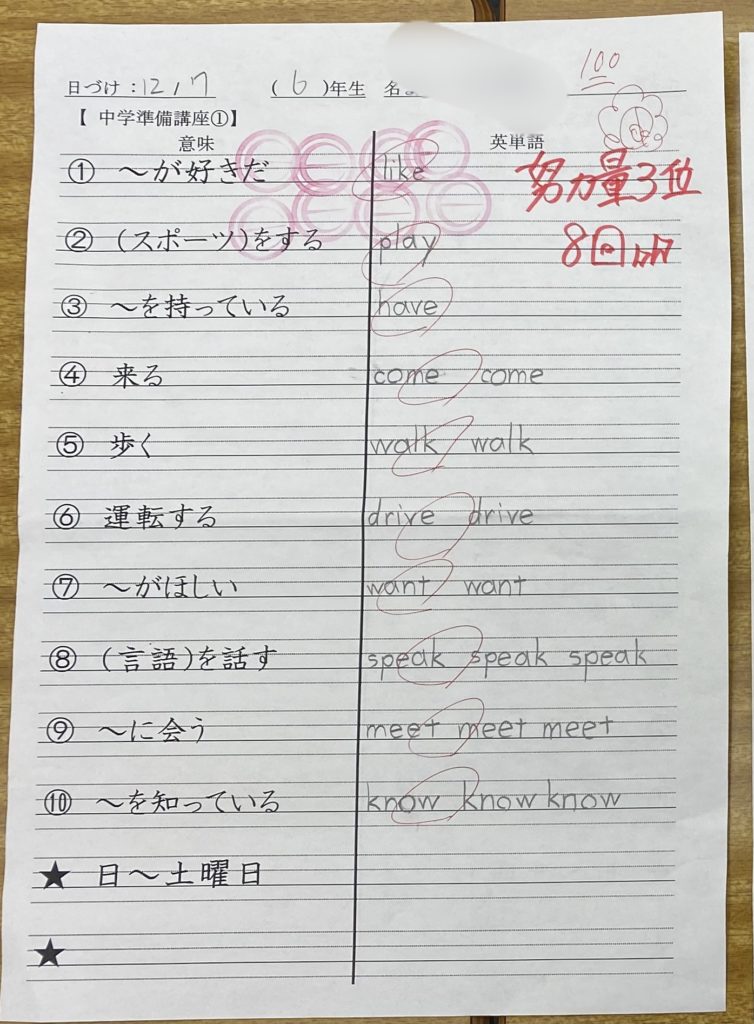 100
日づけ：12/7 （6）年生 名
【 中学準備講座①】
意味 英単語
① ～が好きだ like
努力量3位
② (スポーツ)をする play
8回
③ ～を持っている have
④ 来る come come
⑤ 歩く walk walk
⑥ 運転する drive drive
⑦ ～がほしい want want
⑧ (言語)を話す speak speak speak
⑨ ～に会う meet meet meet
⑩ ～を知っている know know know
★ 日～土曜日
★